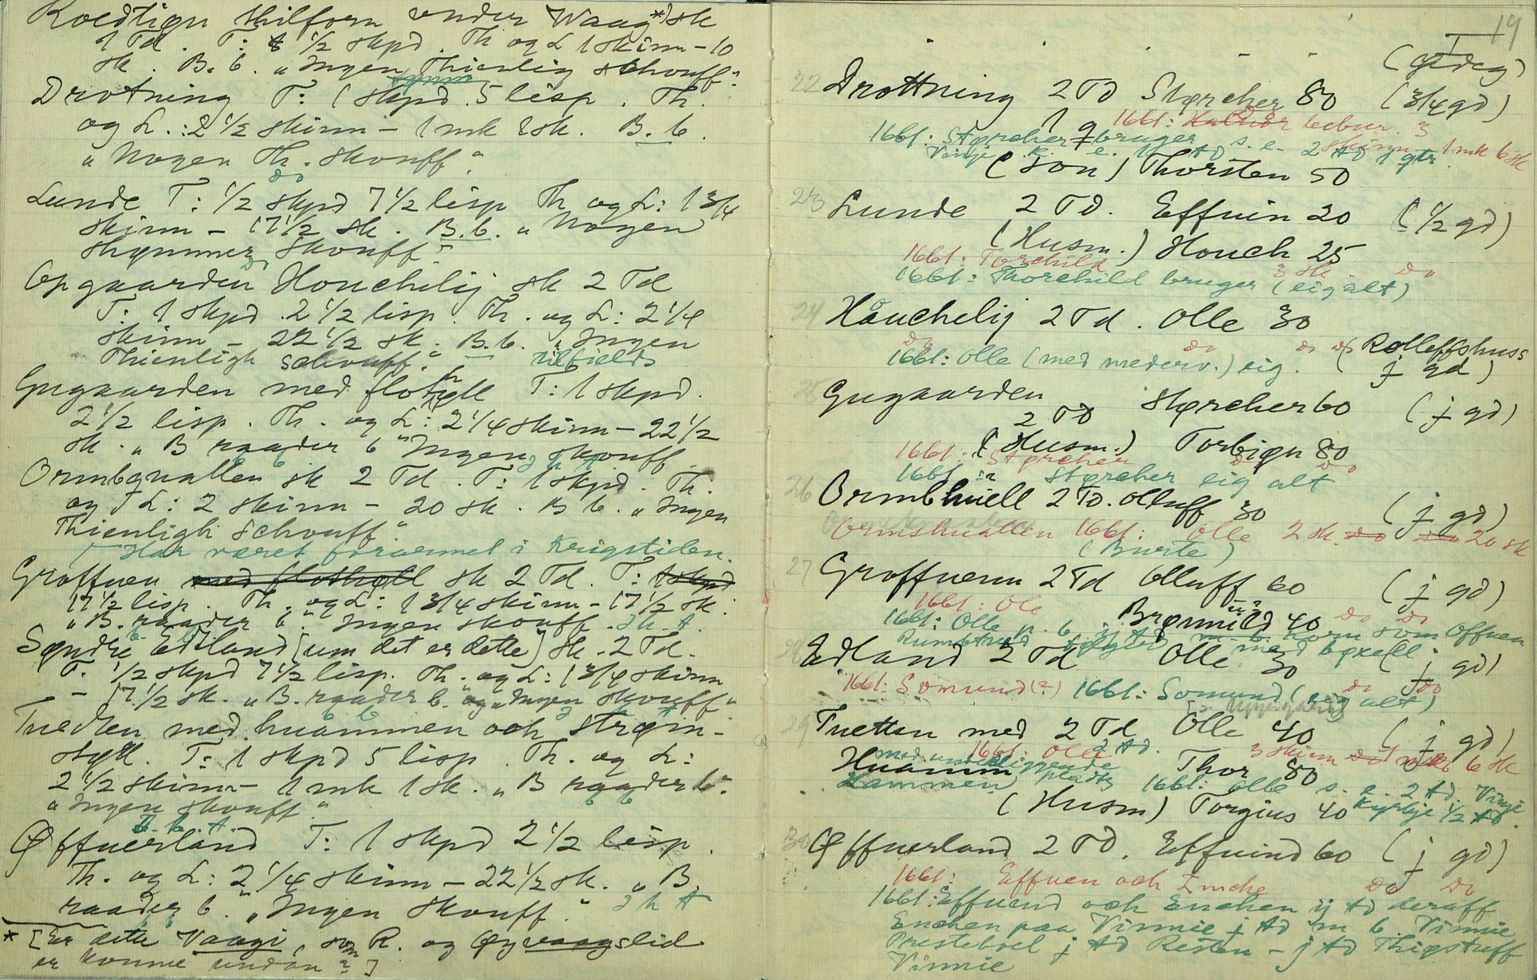 Roedtign thilforn under Waag*) sk
1 Td. T: 1/2 skpd. Th og L 1 skinn - 10
sk. B. b. "Ingen Thienlig schouff".
Drotning T: 1 skpd. 5 lisp. Th.
og L.: 2 1/2 skinn - 1 mk 1 sk. B. b.
"Nogen Th. skouff".
do
Lunde T: 1/2 skpd 7 1/2 lisp Th og L: 1 3/4
skinn - 17 1/2 sk. B. b. "Nogen
Skemmer skouff".
do
Opgaarden Houchelij sk 2 Td
T: 1 skpd. 2 1/2 lisp. Th. og L: 2 1/4
skinn - 22 1/2 sk. B. b. "Ingen
Thienligh schouff". tilfields
Gugaarden med flothyll T: 1 skpd.
2 1/2 lisp. Th. og L: 2 1/4 skinn - 22 1/2
sk. "B raader b" "Ingen skouff.
Ormbquallen sk 2 Td. T: 1 skpd. Th.
og L: 2 skinn - 20 sk. B b. "Ingen
Thienligh schouff".
Har været forarmet i Krigstiden
Groffuen med flothyll sk 2 Td. T: 1 skpd
17 1/2 lisp. Th. og L: 1 3/4 skinn - 17 1/2 sk.
"B. raader b". "Ingen skouff.
Syndre Edland [um det er dette] sk. 2 Td.
T. 1/2 skpd 7 1/2 lisp. Th. og L: 1 3/4 skinn
- 17 1/2 sk. "B. raader b. og "Ingen skouff"
Tuedten med huammen och strøm-
styll. T: 1 skpd 5 lisp. Th. og L:
2 1/2 skinn - 1 mk 1 sk. "B raader b".
"Ingen skouff".
B. b. A.
Øffuerland T: 1 skpd 2 1/2 lisp.
Th. og L: 2 1/4 skinn - 22 1/2 sk. "B
raader b. "Ingen skouff".
* [Er dette Vaagi, som R. og Øyvaagslid
er komne undan?]
19
I
(ødeg)
22 Drottning 2 TD Stercher 80 (3/4 gd)
1661: leebur. 3
1661: Stercher bruger s. e. 2 td 1 qtr. skinn 1 mk 6 sk
Vinje
(Son) Thorsten 50
23 Lunde 2 TD. Effuin 20 (1/2 gd)
(Husm.) Houch 25
1661: Torchild 3 sk. do
1661: Thorchild bruger (eig alt)
24 Håuchelij 2 Td. Olle 30
do do do
1661: Olle (med mederv.) eig. (Rolleffshuss
j gd)
25 Gugaarden Stercher 60 (j gd)
2 TD
(Husm.) Torbign 80
1661: Stercher do do
1661: Stercher eig alt
26 Ormbhuell 2 TD. Olluff 30 (j gd)
Ormshuallen 1661: Olle 2 sk. do do 20 sk
(Burte)
27 Groffuenn 2 Td Olluff 60 (j gd)
1661: Ole Brønnild 40 do do
1661: Olle
28 Edland 2 Td Olle 30 (j gd)
1661: Somund (?) 1661: Somund (eig alt) do do
29 Tuetten med 2 Td Olle 40 (j gd)
1661: Olle 3 skinn 6 sk
med underliggende
Huamm Thor 80
Lammen plads 1661: Olle s. e. 2 td. Vinje
(Husm) Torgius 40 Kyrkje 1/2 td.
30 Øffuerland 2 TD. Effuind 60 (j gd)
1661: Effuen och Enche do do
1661: Effuend och Enchen ij td deraff
Enchen paa Vinnie j td m b. Vinnie
Prestebol j td Resten - j td Thigstuff
Vinnie